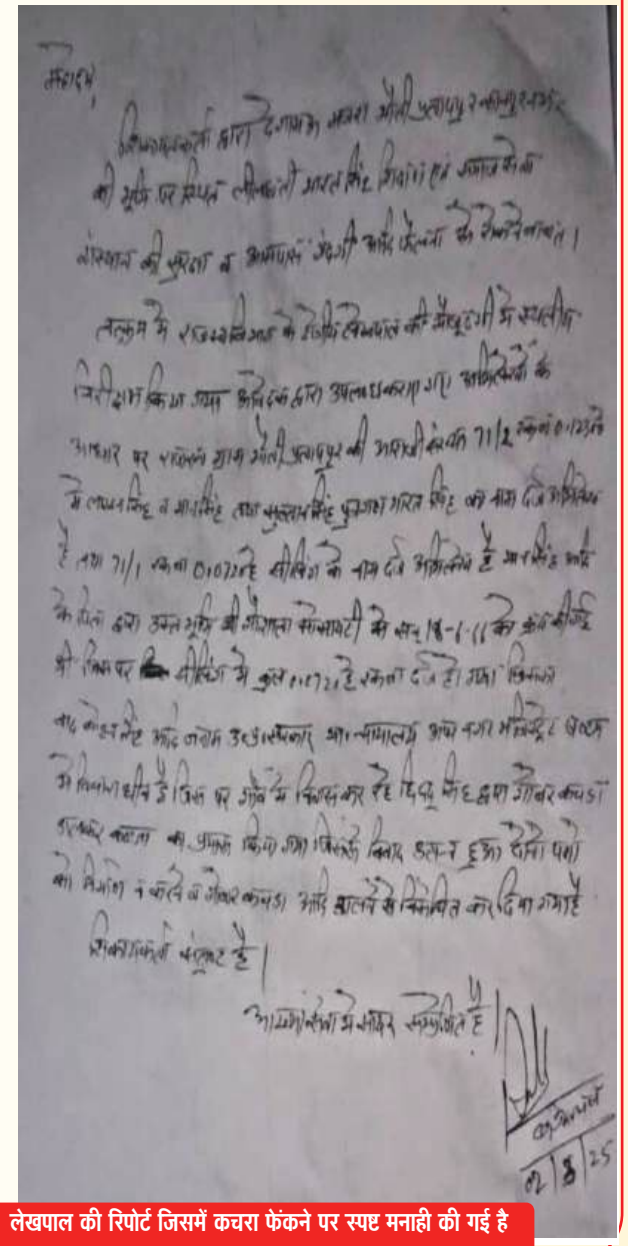 महोदय,
शिकायतकर्ता द्वारा देनाम मजरा मौली प्रतापपुर कानपुर नगर
की भूमि पर स्थित लीलावती भारत सिंह एवं समाज सेवा
संस्थान की सुरक्षा व आसपास गंदगी आदि फैलाने के रोकने बावत।
तत्क्रम में राजस्व विभाग के क्षेत्रीय लेखपाल की मौजूदगी में स्थलीय
निरीक्षण किया गया आवेदक द्वारा उपलब्ध कराए गए अभिलेखों के
आधार पर ग्राम मौली प्रतापपुर की आराजी संख्या 71/2 रकबा
में व मानसिंह तथा पुत्रगण भारत सिंह का नाम दर्ज अभिलेख
है तथा 71/1 रकबा 0.072हे सीलिंग के नाम दर्ज अभिलेख है मानसिंह आदि
के पिता द्वारा उक्त भूमि श्री गौशाला सोसायटी से सन् को क्रय की गई
थी जिस पर सीलिंग में कुल 0.072हे रकबा दर्ज हो गया जिसका
वाद आदि बनाम उ०प्र०सरकार न्यायालय अपर नगर मजिस्ट्रेट
में विचाराधीन है जिस पर गाँव में निवास कर रहे सिंह द्वारा गोबर कचडा
डालकर कब्जा का प्रयास किया गया जिससे विवाद उत्पन्न हुआ दोनो पक्षो
को निर्माण न करने व गोबर कचडा आदि डालने से कर दिया गया है
शिकायतकर्ता संतुष्ट है।
आख्या सेवा में सादर सम्प्रेषित है।
02/8/25
लेखपाल की रिपोर्ट जिसमें कचरा फेंकने पर स्पष्ट मनाही की गई है